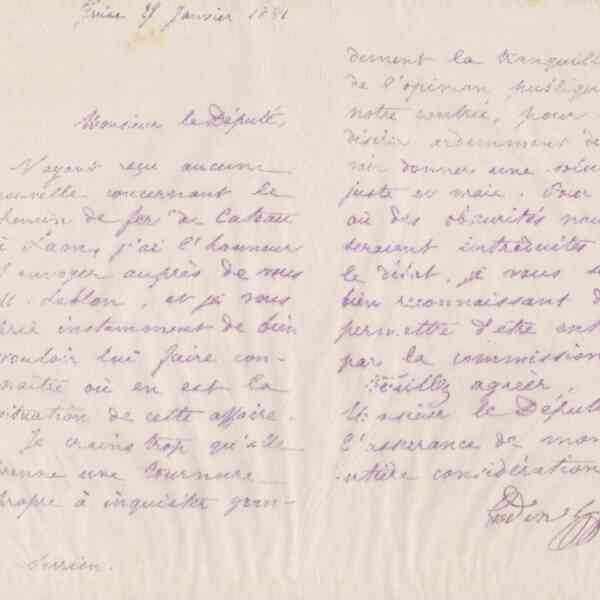 Guise 25 Janvier 1881
Monsieur le Député,
N'ayant reçu aucune
nouvelle concernant le
chemin de fer de Cateau
à Laon, j'ai l'honneur
d'envoyer auprès de vous
M. Leblon, et je vous
prie instamment de bien
vouloir lui faire con-
naître où en est la
situation de cette affaire.
Je crains trop qu'elle
prenne une tournure
propre à inquiéter gran-
Serrien.
dement la tranquill
de l'opinion publique
notre contrée, pour
désirer ardemment de
voir donner une
juste et vraie. Pour
où des obscurités
seraient introduites
le débat, je vous
bien reconnaissant d
permette d'être ent
par la commission
Veuillez agréer,
Monsieur le Député
l'assurance de mon
entière considération
Godin